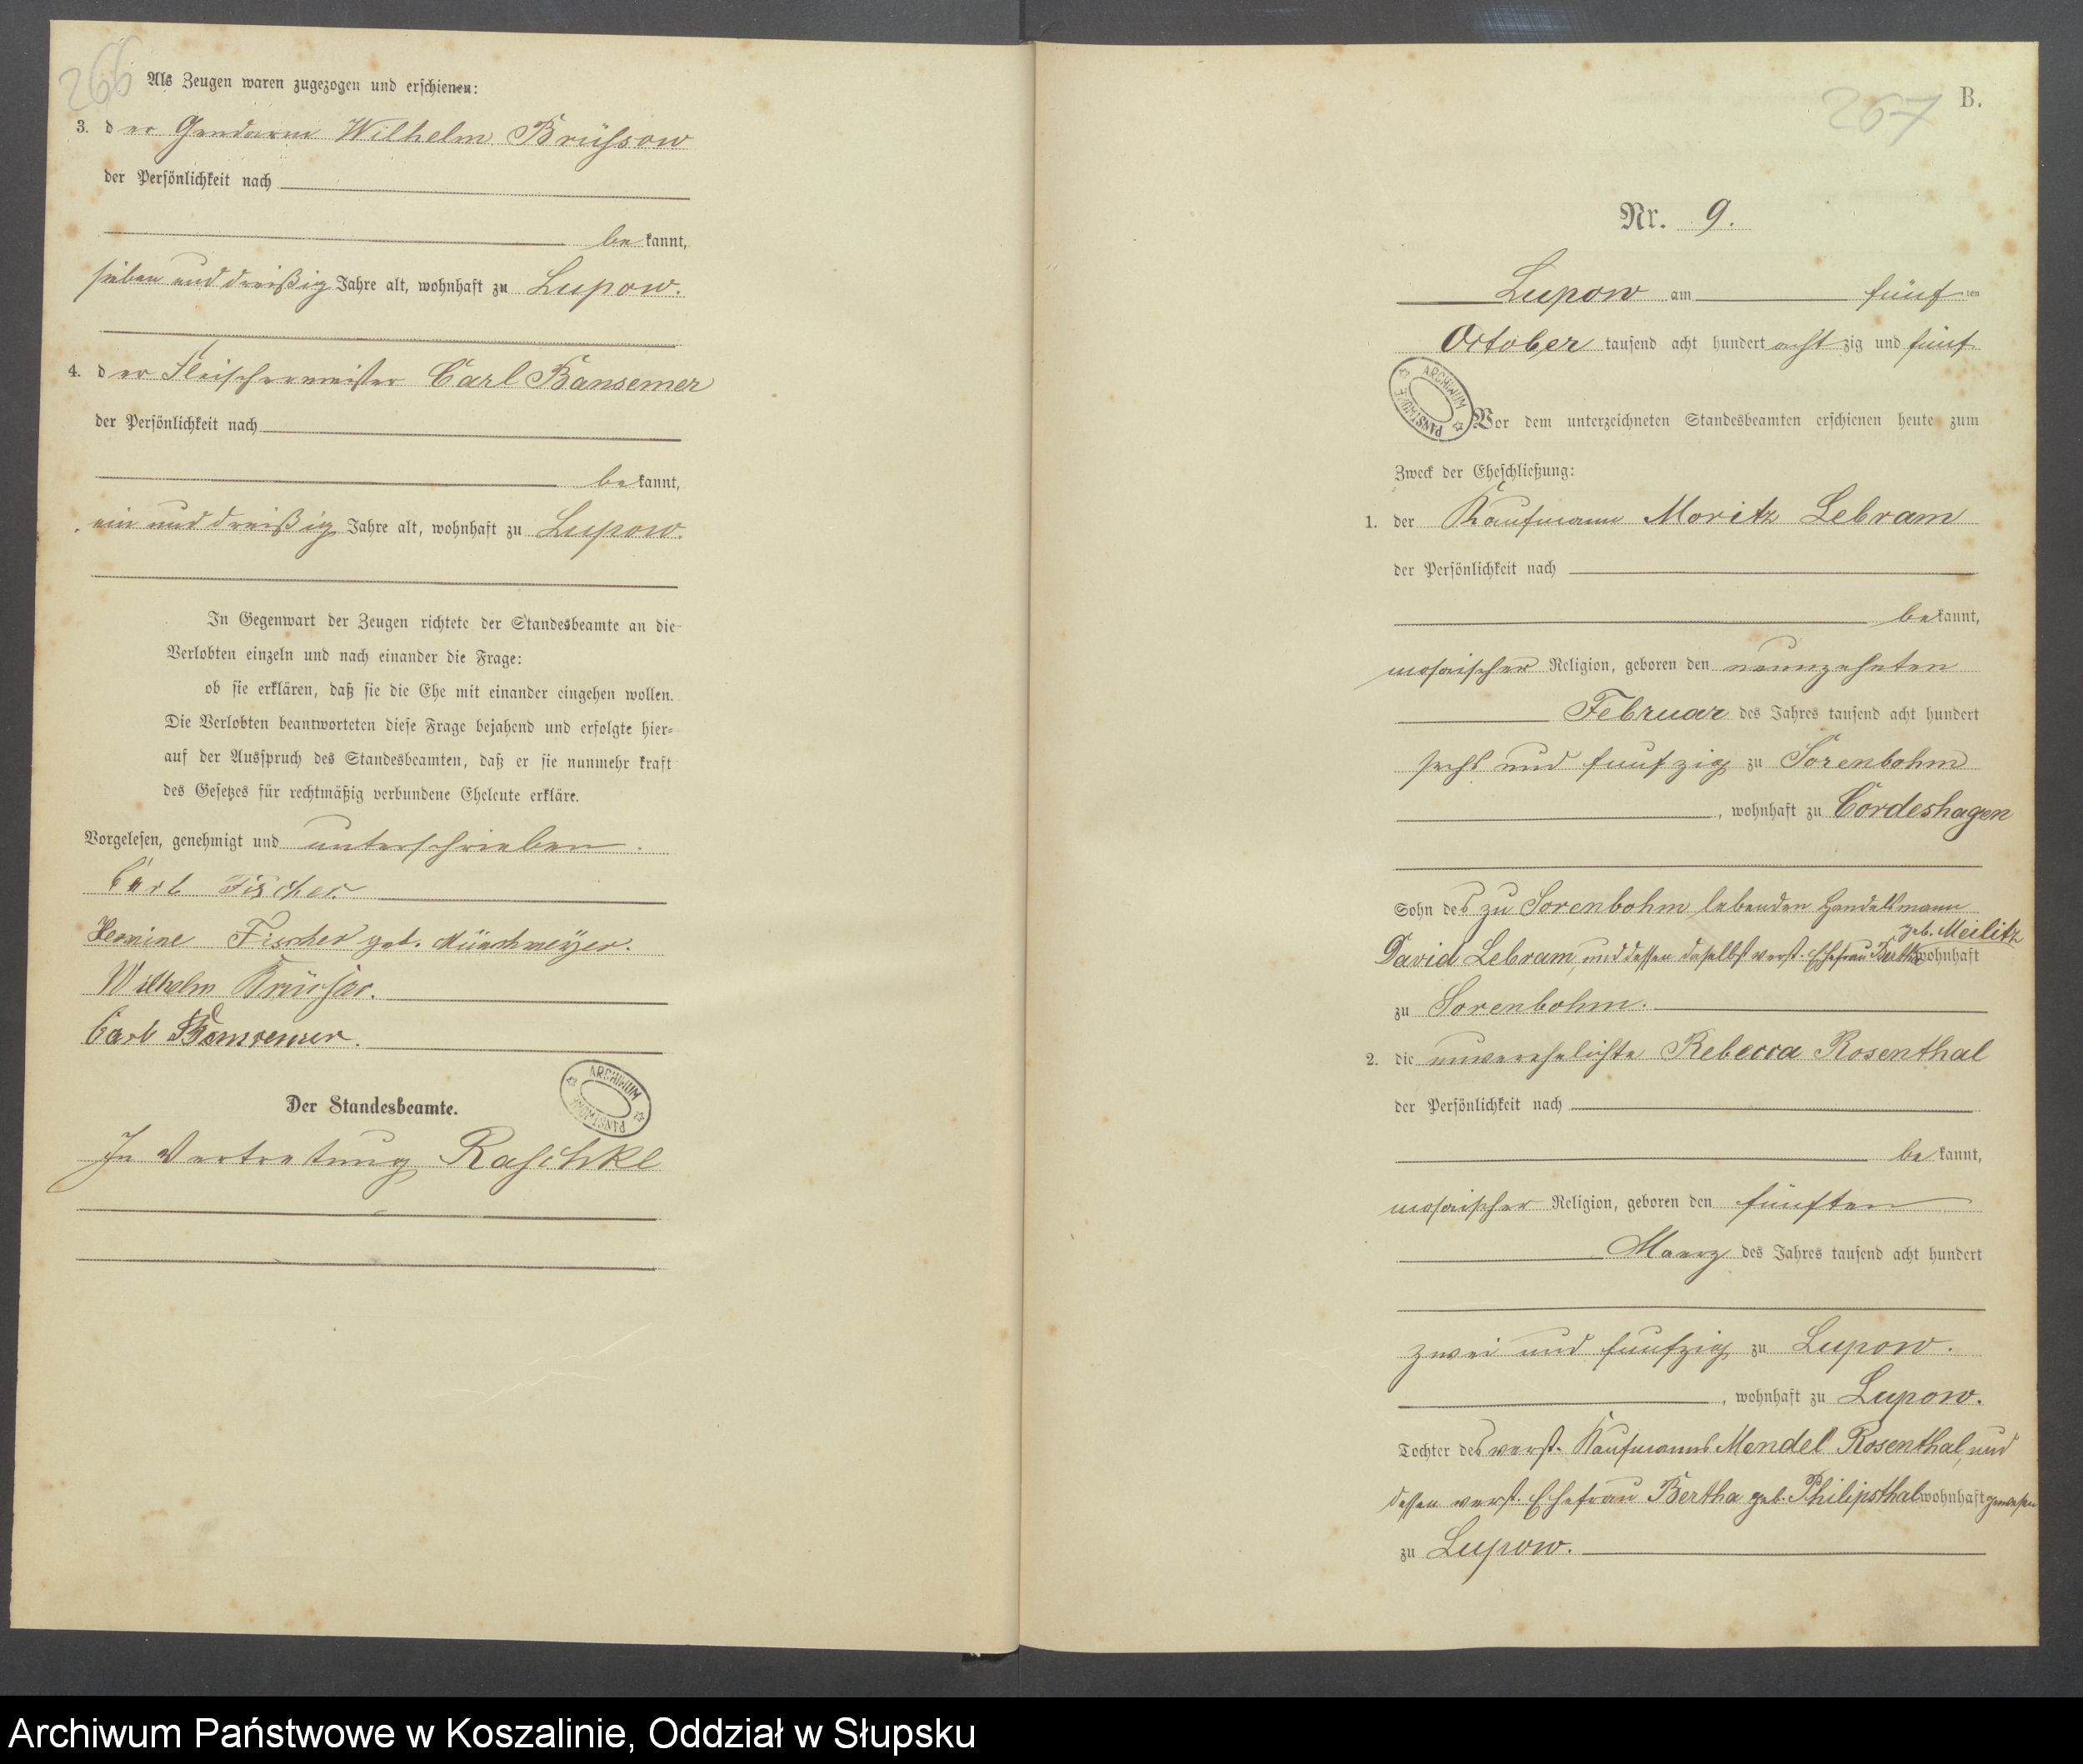 266
Als Zeugen waren zugezogen und erschienen:
3. der Gendarm Wilhelm Brüssow
der Persönlichkeit nach
bekannt,
sieben und dreißig Jahre alt, wohnhaft zu Lupow.
4. der Fleischermeister Carl Bansemer
der Persönlichkeit nach
bekannt,
ein und dreißig Jahre alt, wohnhaft zu Lupow.
In Gegenwart der Zeugen richtete der Standesbeamte an die
Verlobten einzeln und nach einander die Frage:
ob sie erklären, daß sie die Ehe mit einander eingehen wollen.
Die Verlobten beantworteten diese Frage bejahend und erfolgte hier-
auf der Ausspruch des Standesbeamten, daß er sie nunmehr kraft
des Gesetzes für rechtmäßig verbundene Eheleute erkläre.
Vorgelesen, genehmigt und unterschrieben.
Carl Fischer
Hermine Fischer geb. Münchmeyer.
Wilhelm Brüssow.
Carl Bansemer.
ARCHIWUM PAŃSTWOWE
Der Standesbeamte.
In Vertretung Raschke
267
B.
Nr. 9.
Lupow am fünften
October tausend acht hundert achtzig und fünf
ARCHIWUM PAŃSTWOWE
Vor dem unterzeichneten Standesbeamten erschienen heute zum
Zweck der Eheschließung:
1. der Kaufmann Moritz Lebram
der Persönlichkeit nach
bekannt,
mosaischer Religion, geboren den neunzehnten
Februar des Jahres tausend acht hundert
sechs und funfzig zu Sorenbohm
, wohnhaft zu Cordeshagen
Sohn des zu Sorenbohm lebenden Handelsmann
geb. Meilitz
David Lebram, und dessen daselbst verst. Ehefrau Bertha wohnhaft
zu Sorenbohm.
2. die unverehelichte Rebecca Rosenthal
der Persönlichkeit nach
bekannt,
mosaischer Religion, geboren den fünften
Maerz des Jahres tausend acht hundert
zwei und funfzig zu Lupow.
, wohnhaft zu Lupow.
Tochter des verst. Kaufmanns Mendel Rosenthal, und
dessen verst. Ehefrau Bertha geb. Philipsthal wohnhaft gewesen
zu Lupow.
Archiwum Państwowe w Koszalinie, Oddział w Słupsku